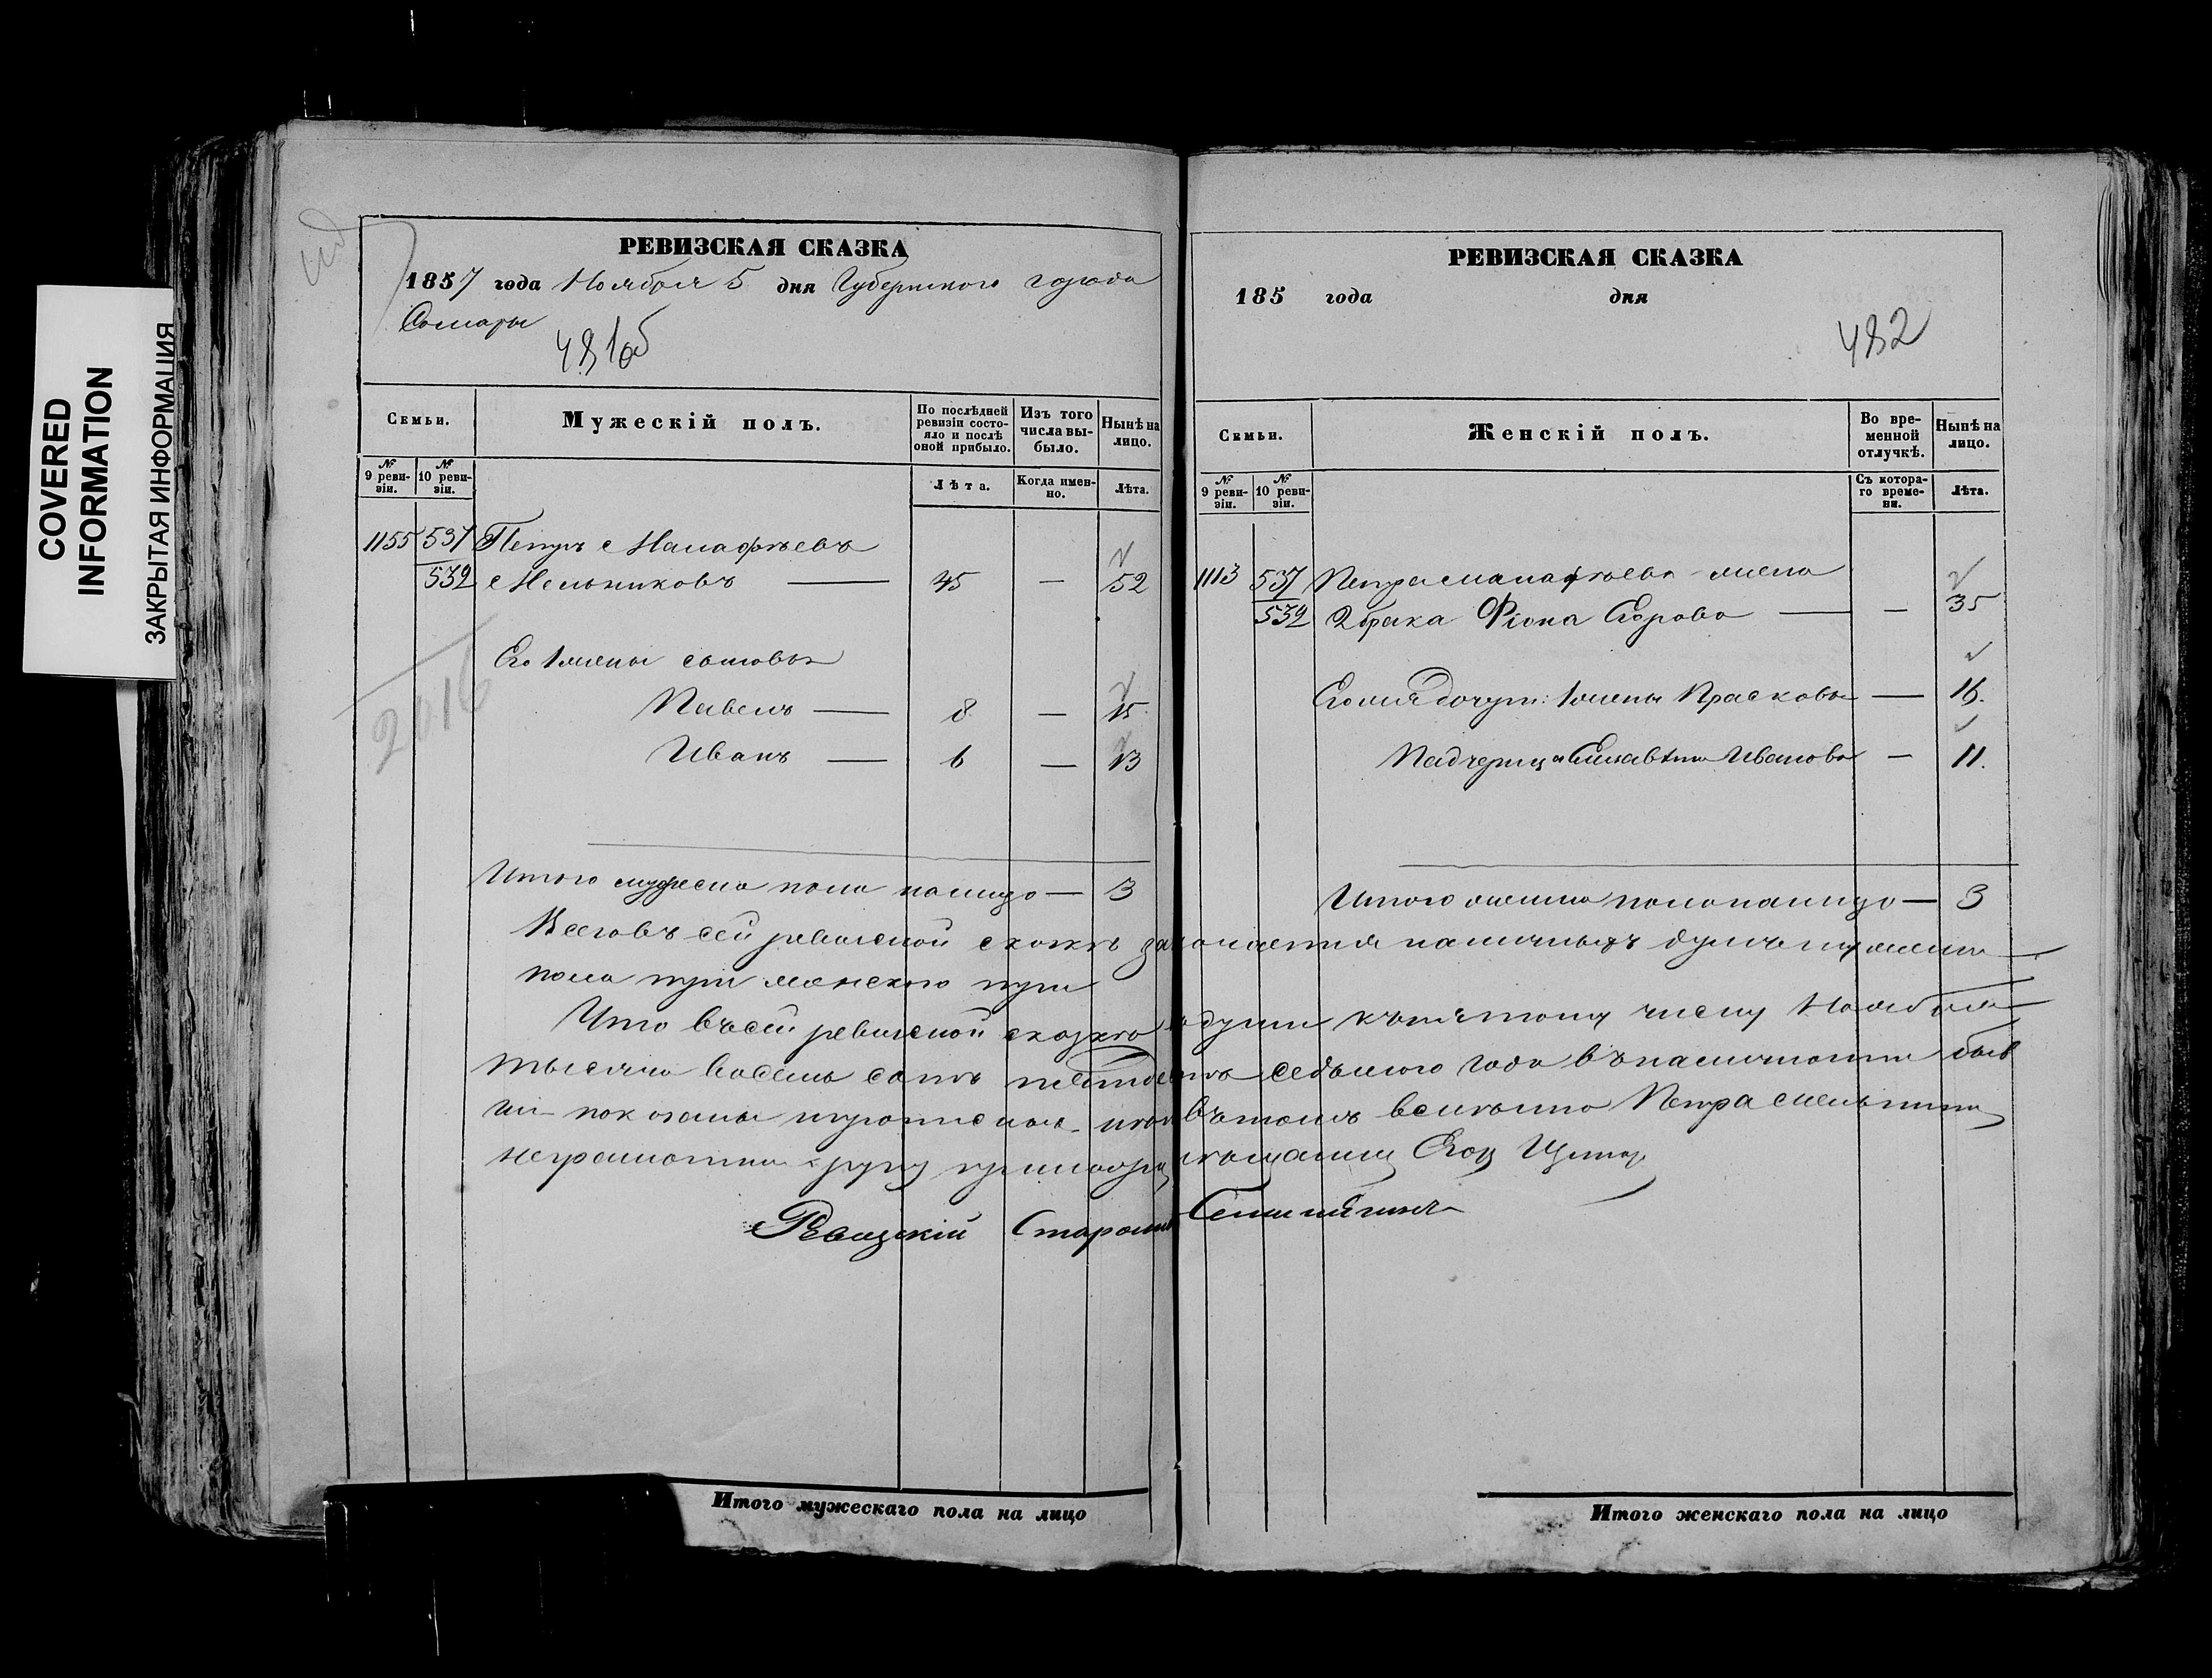 COVERED
INFORMATION
ЗАКРЫТАЯ ИНФОРМАЦИЯ
РЕВИЗСКАЯ СКАЗКА
1857 года Ноября 5 дня Губернского города
Самары
481об
Семьи.
Мужескій полъ.
По послѣдней ревизіи состояло и послѣ оной прибыло.
Изъ того числа выбыло.
Нынѣ на лицо.
№ 9 ревизіи.
№ 10 ревизіи.
Лѣта.
Когда именно.
Лѣта.
1155 537 Петръ Манафѣевъ
532 Мельниковъ — 45 — 52
Его 1 жены сыновья
Павелъ — 8 — 15
Иванъ — 6 — 13
2016
Итого мужеска пола налицо — 3
РЕВИЗСКАЯ СКАЗКА
185 года дня
482
Семьи.
Женскій полъ.
Во временной отлучкѣ.
Нынѣ на лицо.
№ 9 ревизіи.
№ 10 ревизіи.
Съ котораго времени.
Лѣта.
1113 537 Петра Манафѣева жена
532 2 брака Фіона Егорова — — 35
1 жены Прасковья — 16.
Падчерица Елисавѣта Иванова — 11.
Итого женска пола налицо — 3
Всего въ сей ревизской сказкѣ заключается наличныхъ душъ мужеска
пола три женского три
Что въ сей ревизской сказкѣ души къ пятому числу Ноября
тысяча восемь сотъ пятьдесятъ седьмого года въ наличности быв
ши показаны въ томъ вместо Петра Мельникова
неграмотна руку приложилъ мещанинъ Егор
Ревизскій Староста
Итого мужескаго пола на лицо
Итого женскаго пола на лицо